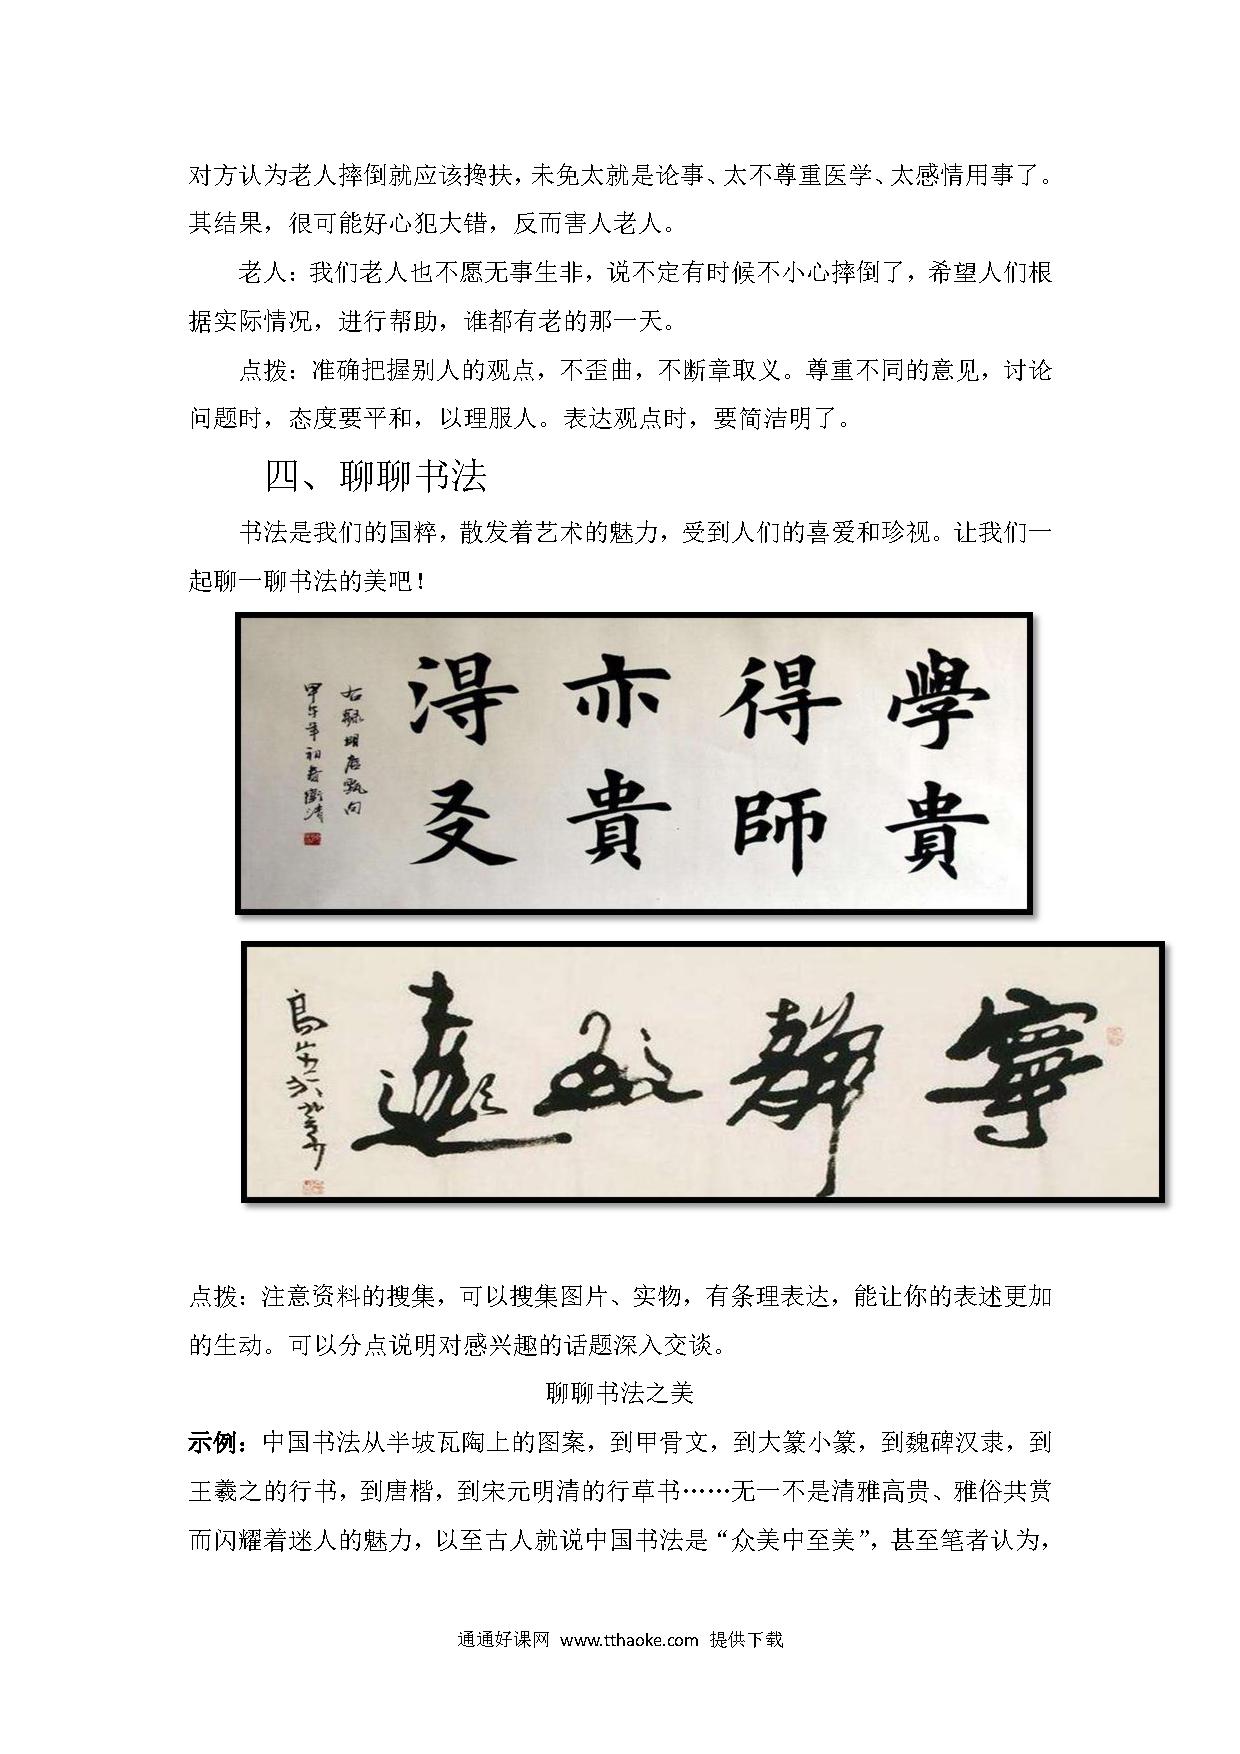 对方认为老人摔倒就应该搀扶，未免太就是论事、太不尊重医学、太感情用事了。
其结果，很可能好心犯大错，反而害人老人。
老人：我们老人也不愿无事生非，说不定有时候不小心摔倒了，希望人们根
据实际情况，进行帮助，谁都有老的那一天。
点拨：准确把握别人的观点，不歪曲，不断章取义。尊重不同的意见，讨论
问题时，态度要平和，以理服人。表达观点时，要简洁明了。
四、聊聊书法
书法是我们的国粹，散发着艺术的魅力，受到人们的喜爱和珍视。让我们一
起聊一聊书法的美吧！
學貴
得師
亦貴
得友
甲午年初春
寧靜致遠
点拨：注意资料的搜集，可以搜集图片、实物，有条理表达，能让你的表述更加
的生动。可以分点说明对感兴趣的话题深入交谈。
聊聊书法之美
示例：中国书法从半坡瓦陶上的图案，到甲骨文，到大篆小篆，到魏碑汉隶，到
王羲之的行书，到唐楷，到宋元明清的行草书……无一不是清雅高贵、雅俗共赏
而闪耀着迷人的魅力，以至古人就说中国书法是“众美中至美”，甚至笔者认为，
通通好课网 www.tthaoke.com 提供下载